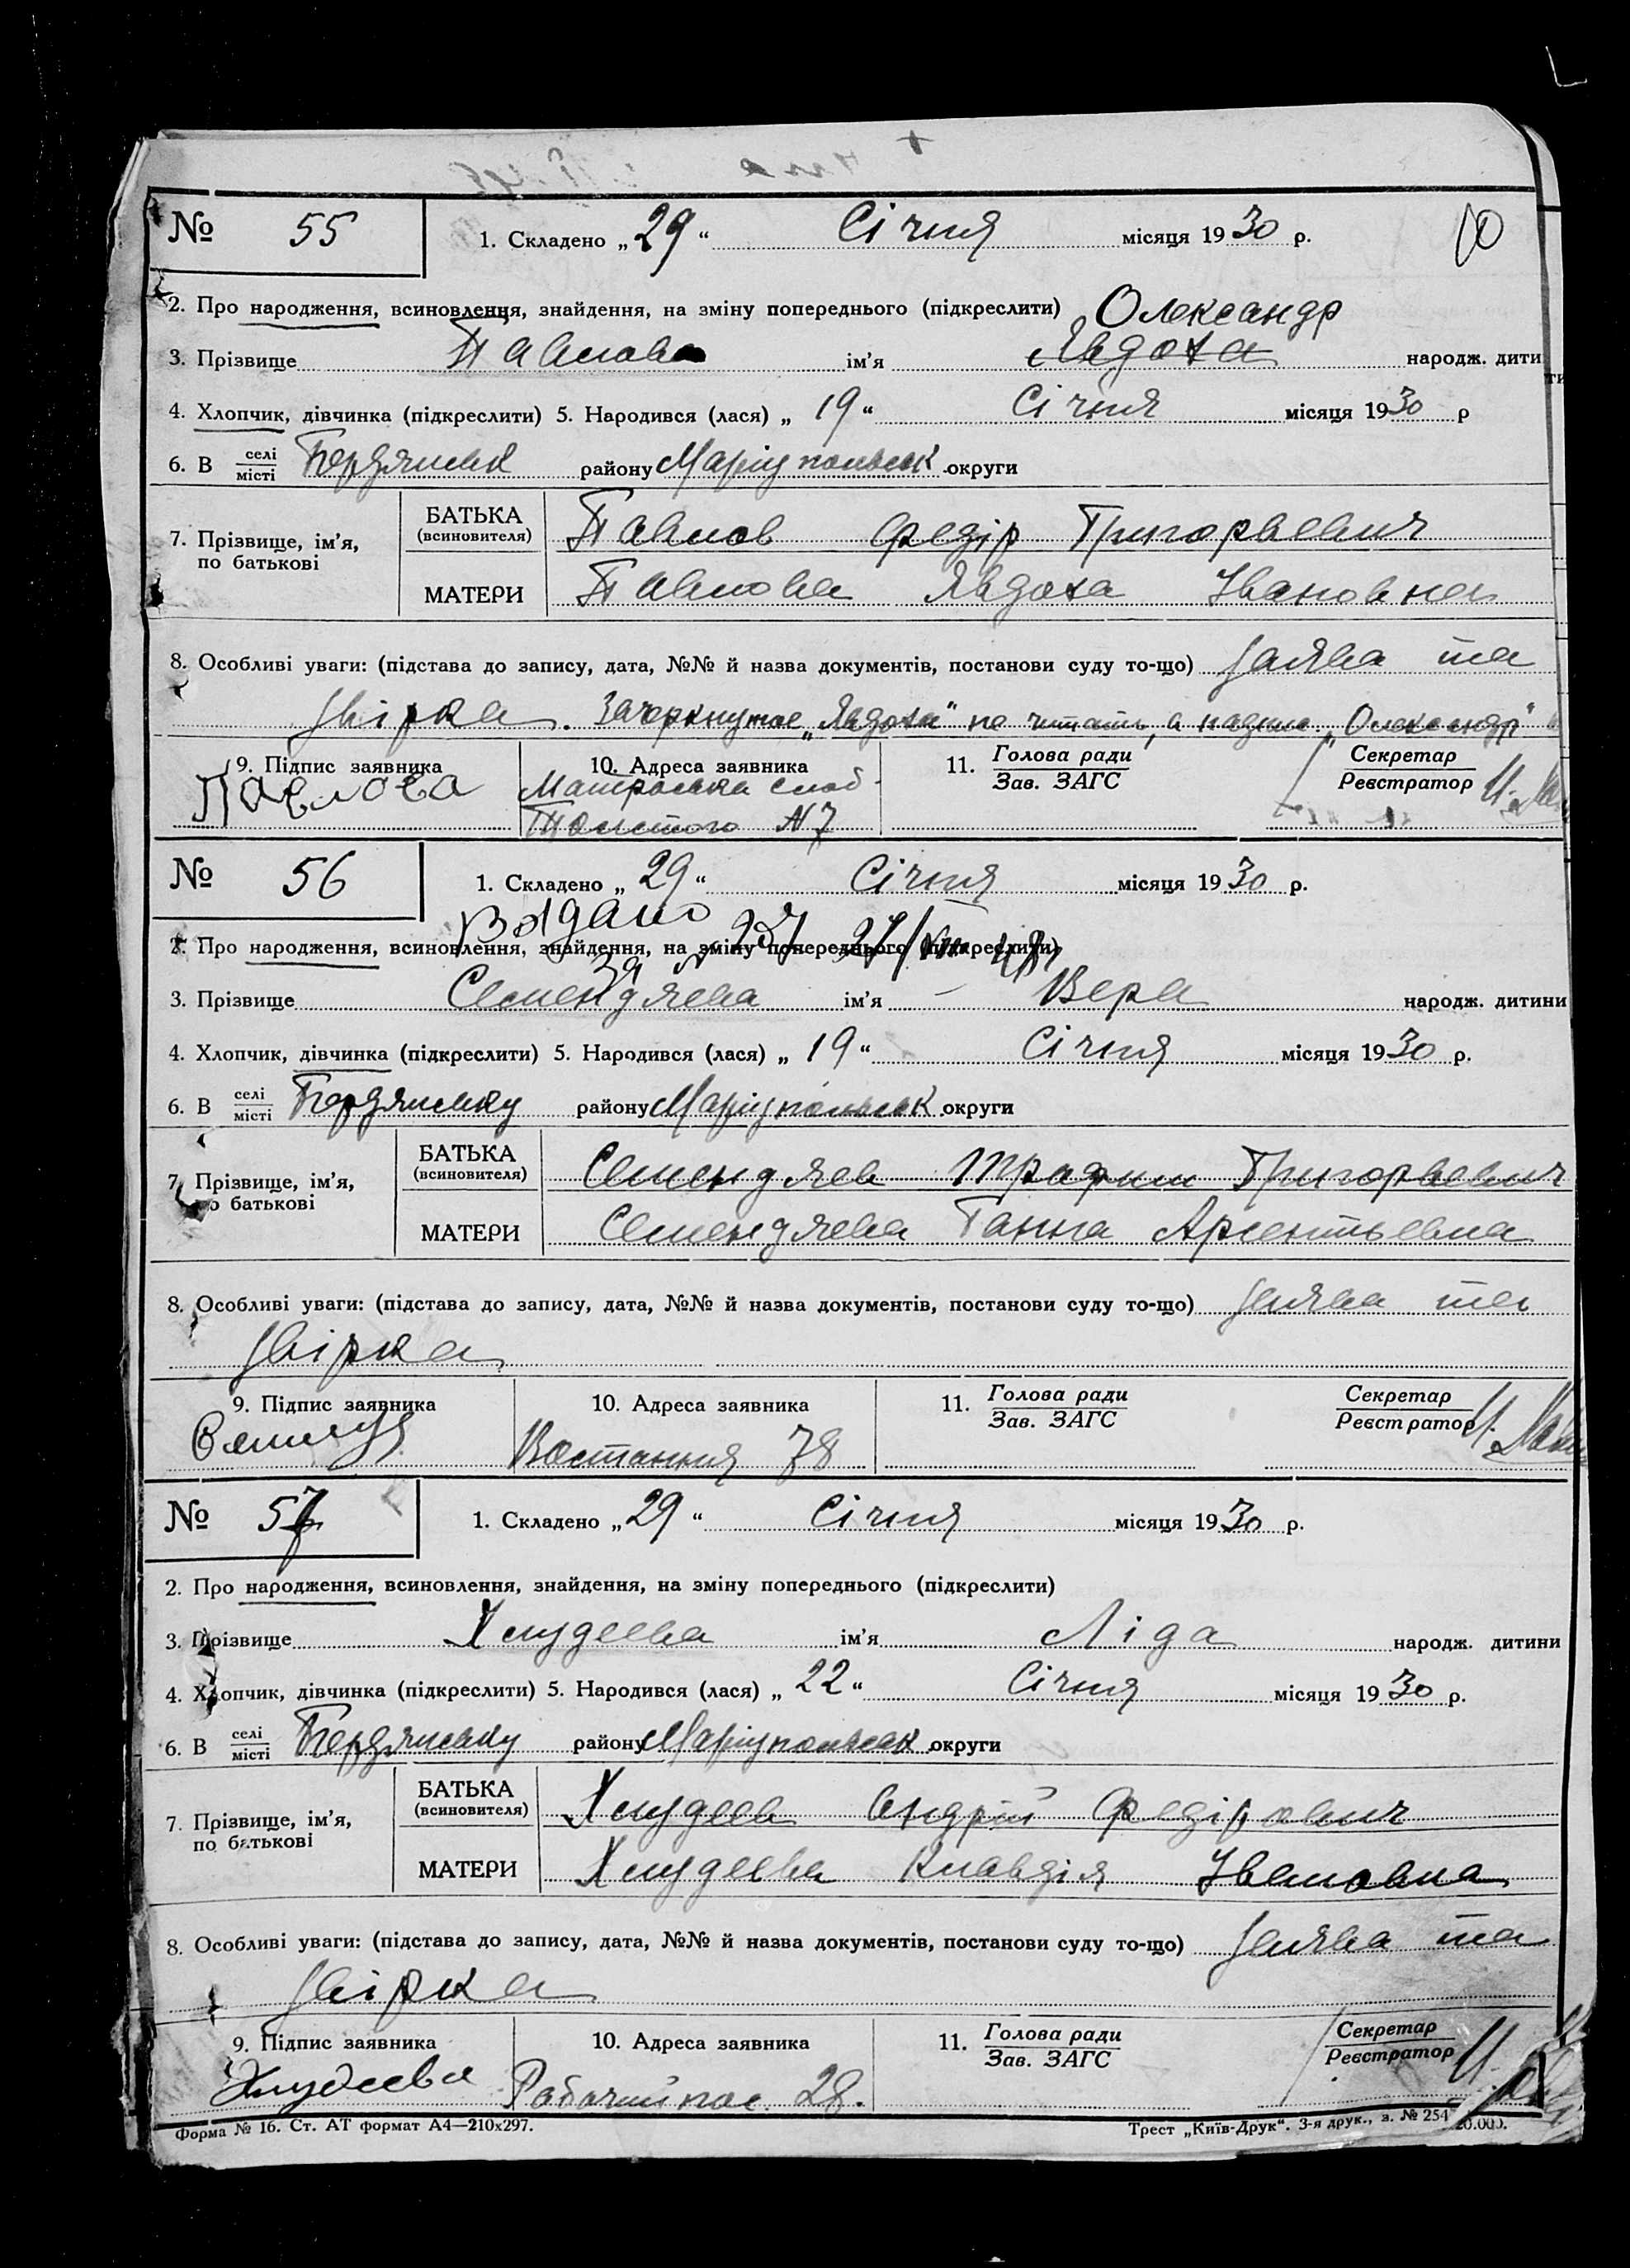 № 55 1. Складено „ 29 “ Січня місяця 19 30 р. 10
2. Про народження, всиновлення, знайдення, на зміну попереднього (підкреслити) Олександр
3. Прізвище Павлов ім’я Явдоха народж. дити
4. Хлопчик, дівчинка (підкреслити) 5. Народився (лася) „ 19 “ Січня місяця 19 30 р
6. В селі/місті Бердянськ району Маріупольськ округи
7. Прізвище, ім’я, по батькові
БАТЬКА (всиновителя) Павлов Федір Григорьевич
МАТЕРИ Павлова Явдоха Івановна
8. Особливі уваги: (підстава до запису, дата, №№ й назва документів, постанови суду то-що) Заява та
Звірка. Зачеркнутое „Явдоха“ не читать, а надпис. „Олександр“
9. Підпис заявника 10. Адреса заявника 11. Голова ради/Зав. ЗАГС Секретар/Реєстратор
Павлова Матроська слоб.
Толстого № 7
№ 56 1. Складено „ 29 “ Січня місяця 19 30 р.
2. Про народження, всиновлення, знайдення, на зміну попереднього (підкреслити)
3. Прізвище Семендяева ім’я Вера народж. дитини
4. Хлопчик, дівчинка (підкреслити) 5. Народився (лася) „ 19 “ Січня місяця 19 30 р.
6. В селі/місті Бердянську району Маріупольськ округи
7. Прізвище, ім’я, по батькові
БАТЬКА (всиновителя) Семендяев Трафим Григорьевич
МАТЕРИ Семендяева Ганна Арсентьевна
8. Особливі уваги: (підстава до запису, дата, №№ й назва документів, постанови суду то-що) Заява та
Звірка
9. Підпис заявника 10. Адреса заявника 11. Голова ради/Зав. ЗАГС Секретар/Реєстратор
Востання 78
№ 57 1. Складено „ 29 “ Січня місяця 19 30 р.
2. Про народження, всиновлення, знайдення, на зміну попереднього (підкреслити)
3. Прізвище Хлудеева ім’я Ліда народж. дитини
4. Хлопчик, дівчинка (підкреслити) 5. Народився (лася) „ 22 “ Січня місяця 19 30 р.
6. В селі/місті Бердянську району Маріупольськ округи
7. Прізвище, ім’я, по батькові
БАТЬКА (всиновителя) Хлудеев Андрій Федірович
МАТЕРИ Хлудеева Клавдія Івановна
8. Особливі уваги: (підстава до запису, дата, №№ й назва документів, постанови суду то-що) Заява та
Звірка
9. Підпис заявника 10. Адреса заявника 11. Голова ради/Зав. ЗАГС Секретар/Реєстратор
Хлудеева Рабочий пос. 28.
Форма № 16. Ст. АТ формат А4—210х297. Трест „Київ-Друк“. 3-я друк., з. № 254 20.000.